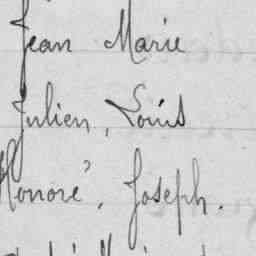 Jean Marie
Julien, Louis
Honoré, Joseph.